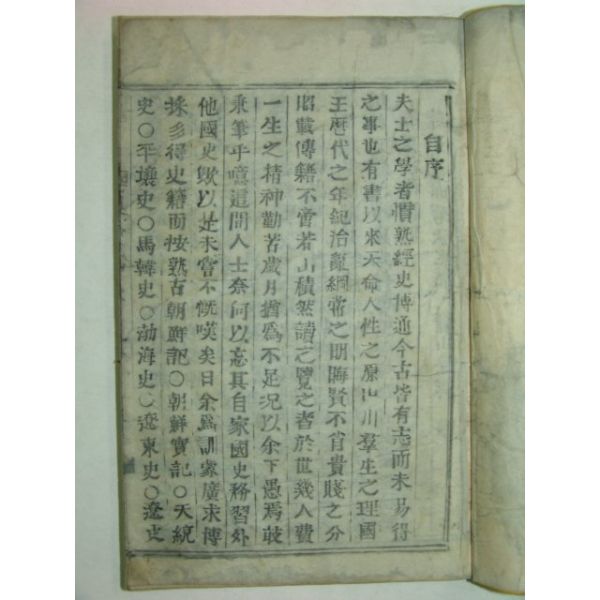 自序
夫士之學者慣熟經史博通今古皆有志而未易得
之事也有書以來天命人性之原山川羣生之理國
王曆代之年紀治亂綱常之明晦賢不肖貴賤之分
昭載傳籍不啻若山積然讀之覽之者於世幾人費
一生之精神勤苦歲月猶爲不足況以余下愚焉敢
秉筆乎噫這間人士奈何以忘其自家國史務習外
他國史歟以是未嘗不慨嘆矣日余爲訓蒙廣求博
採多得史籍而按熟古朝鮮記○朝鮮寶記○天統
史○平壤史○馬韓史○渤海史○遼東史○遼史